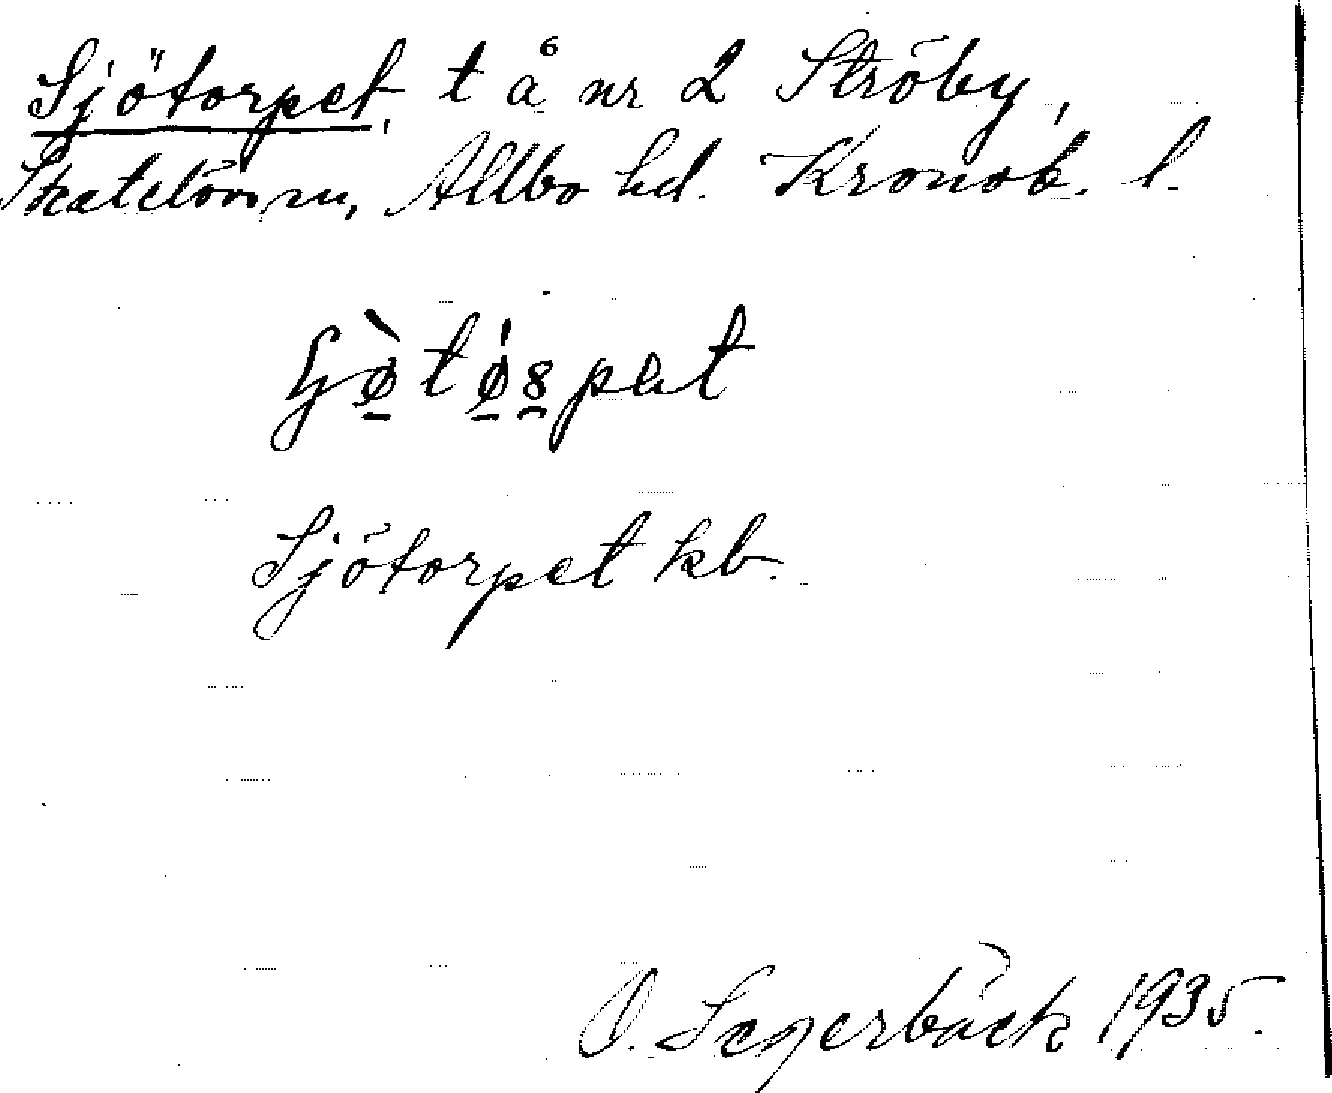 Sjötorpet, t å nr 2 Ströby,
Skatelövs sn, Allbo hd. Kronob. l.
Sjötorpet kb.
O. Segerbäck 1935.